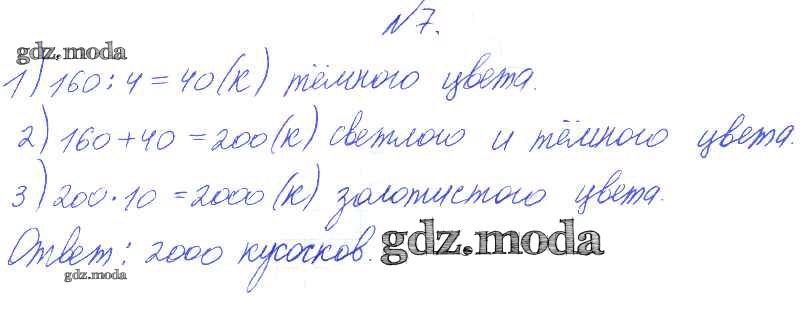 №7.
gdz.moda
1) 160 : 4 = 40 (к) тёмного цвета.
2) 160 + 40 = 200 (к) светлого и тёмного цвета.
3) 200 · 10 = 2000 (к) золотистого цвета.
Ответ: 2000 кусочков. gdz.moda
gdz.moda